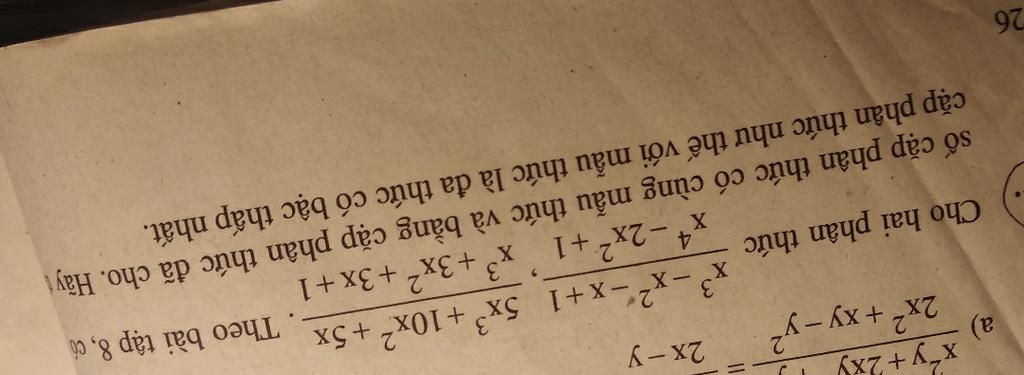 a) x²y + 2xy / 2x² + xy − y² = / 2x − y
Cho hai phân thức x³ − x² − x + 1 / x⁴ − 2x² + 1 , 5x³ + 10x² + 5x / x³ + 3x² + 3x + 1 . Theo bài tập 8, có
số cặp phân thức có cùng mẫu thức và bằng cặp phân thức đã cho. Hãy
cặp phân thức như thế với mẫu thức là đa thức có bậc thấp nhất.
26